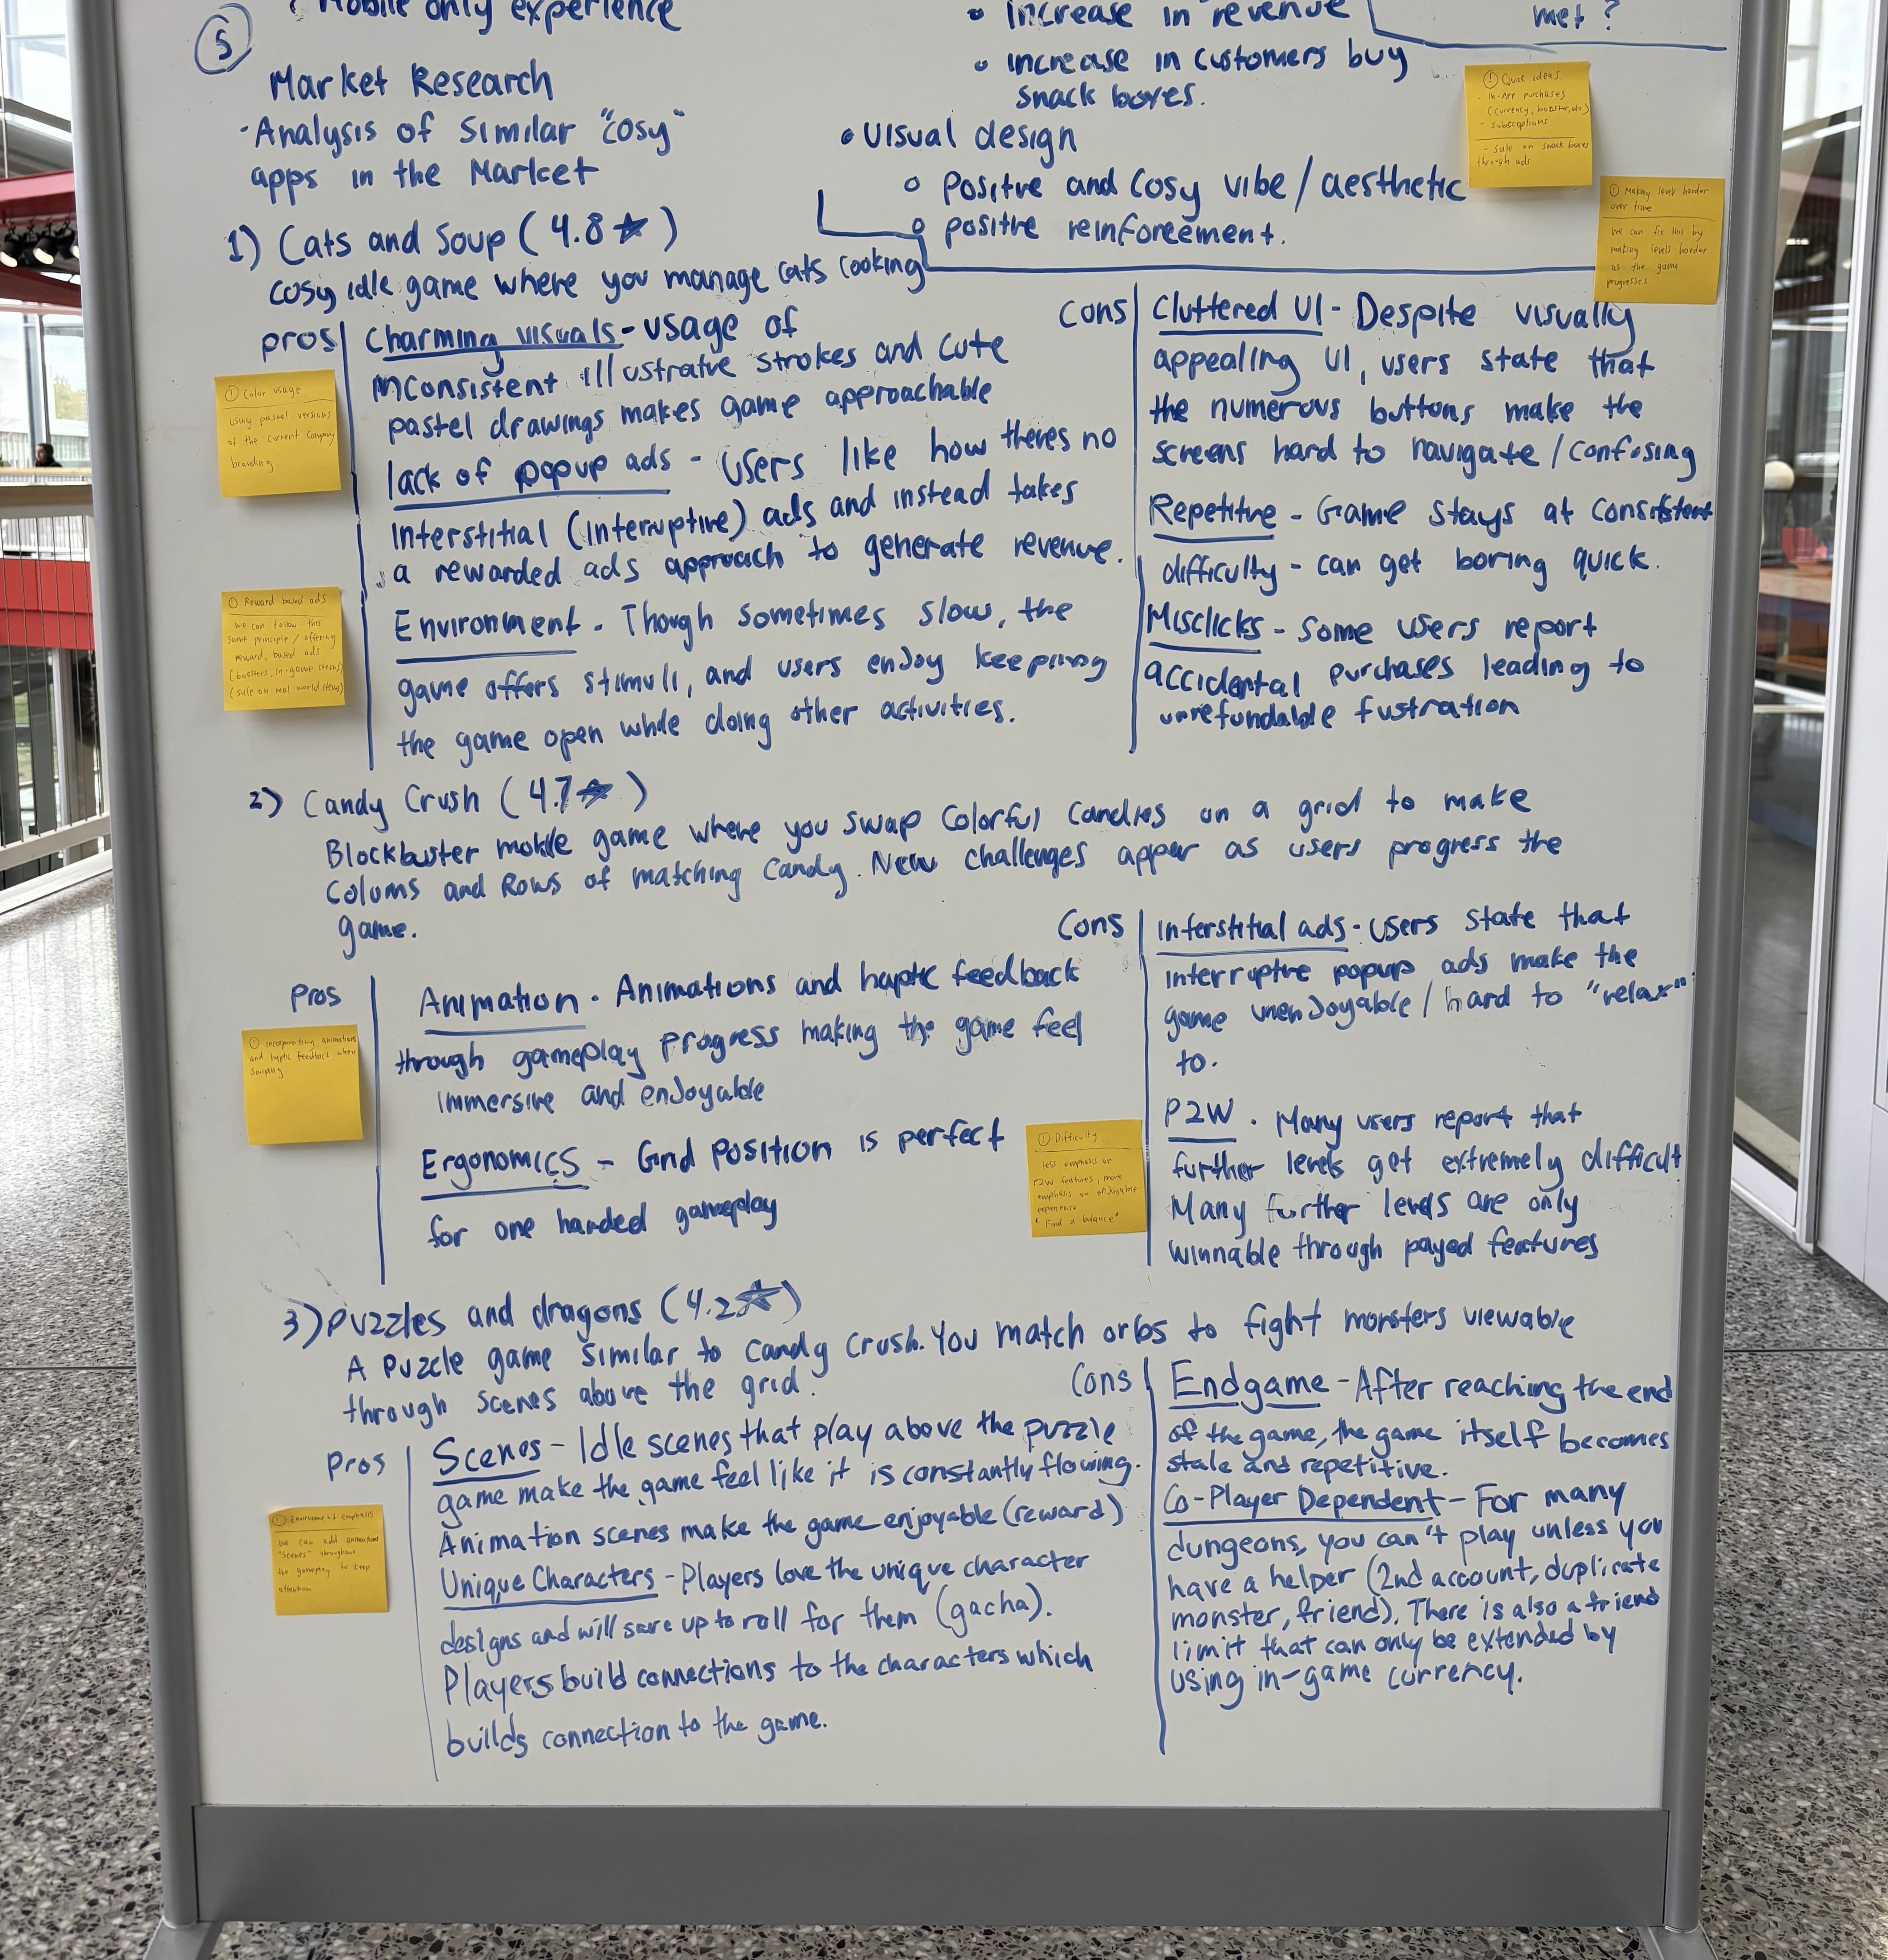 ? Mobile only experience
5
Market Research
-Analysis of Similar "cosy"
apps in the Market
Increase in revenue
increase in customers buy
snack boxes.
Visual design
positive and cosy vibe / aesthetic
positive reinforcement.
met?
! Quick ideas
- In-App purchases
(currency, booster, etc)
- subscriptions
- sale on snack boxes
through ads
! Making levels harder
over time
We can fix this by
making levels harder
as the game
progresses
1) Cats and Soup (4.8★)
cosy idle game where you manage cats cooking
pros
Charming visuals - usage of
inconsistent illustrative strokes and cute
pastel drawings makes game approachable
lack of popup ads - users like how theres no
interstitial (interruptive) ads and instead takes
a rewarded ads approach to generate revenue.
Environment. Though sometimes slow, the
game offers stimuli, and users enjoy keeping
the game open while doing other activities.
! Color usage
using pastel versions
of the current company
branding
! Reward based ads
We can follow this
same principle / offering
reward based ads
(boosters, in-game items)
(sale on real world items)
cons
Cluttered UI - Despite visually
appealing UI, users state that
the numerous buttons make the
screens hard to navigate / confusing
Repetitive - Game stays at consistent
difficulty - can get boring quick.
Misclicks - Some users report
accidental purchases leading to
unrefundable fustration
2) Candy Crush (4.7★)
Blockbuster mobile game where you swap colorful candies on a grid to make
colums and Rows of matching candy. New challenges appear as users progress the
game.
Pros
Animation. Animations and haptic feedback
through gameplay progress making the game feel
immersive and enjoyable
Ergonomics - Grid position is perfect
for one handed gameplay
! incorporating animations
and haptic feedback when
swiping
Cons
Interstitial ads - users state that
interruptive popups ads make the
game unenjoyable / hard to "relax"
to.
P2W. Many users report that
further levels get extremely difficult
Many further levels are only
winnable through payed features
! Difficulty
less emphasis on
P2W features, more
emphasis on enjoyable
experience
* Find a balance*
3) Puzzles and dragons (4.2★)
A puzzle game similar to candy crush. You match orbs to fight monsters viewable
through scenes above the grid.
Pros
Scenes - Idle scenes that play above the puzzle
game make the game feel like it is constantly flowing.
Animation scenes make the game enjoyable (reward)
Unique Characters - Players love the unique character
designs and will save up to roll for them (gacha).
Players build connections to the characters which
builds connection to the game.
! Environment emphasis
We can add animations
"scenes" throughout
the gameplay to keep
attention
Cons
Endgame - After reaching the end
of the game, the game itself becomes
stale and repetitive.
Co-Player Dependent - For many
dungeons, you can't play unless you
have a helper (2nd account, duplicate
monster, friend). There is also a friend
limit that can only be extended by
using in-game currency.